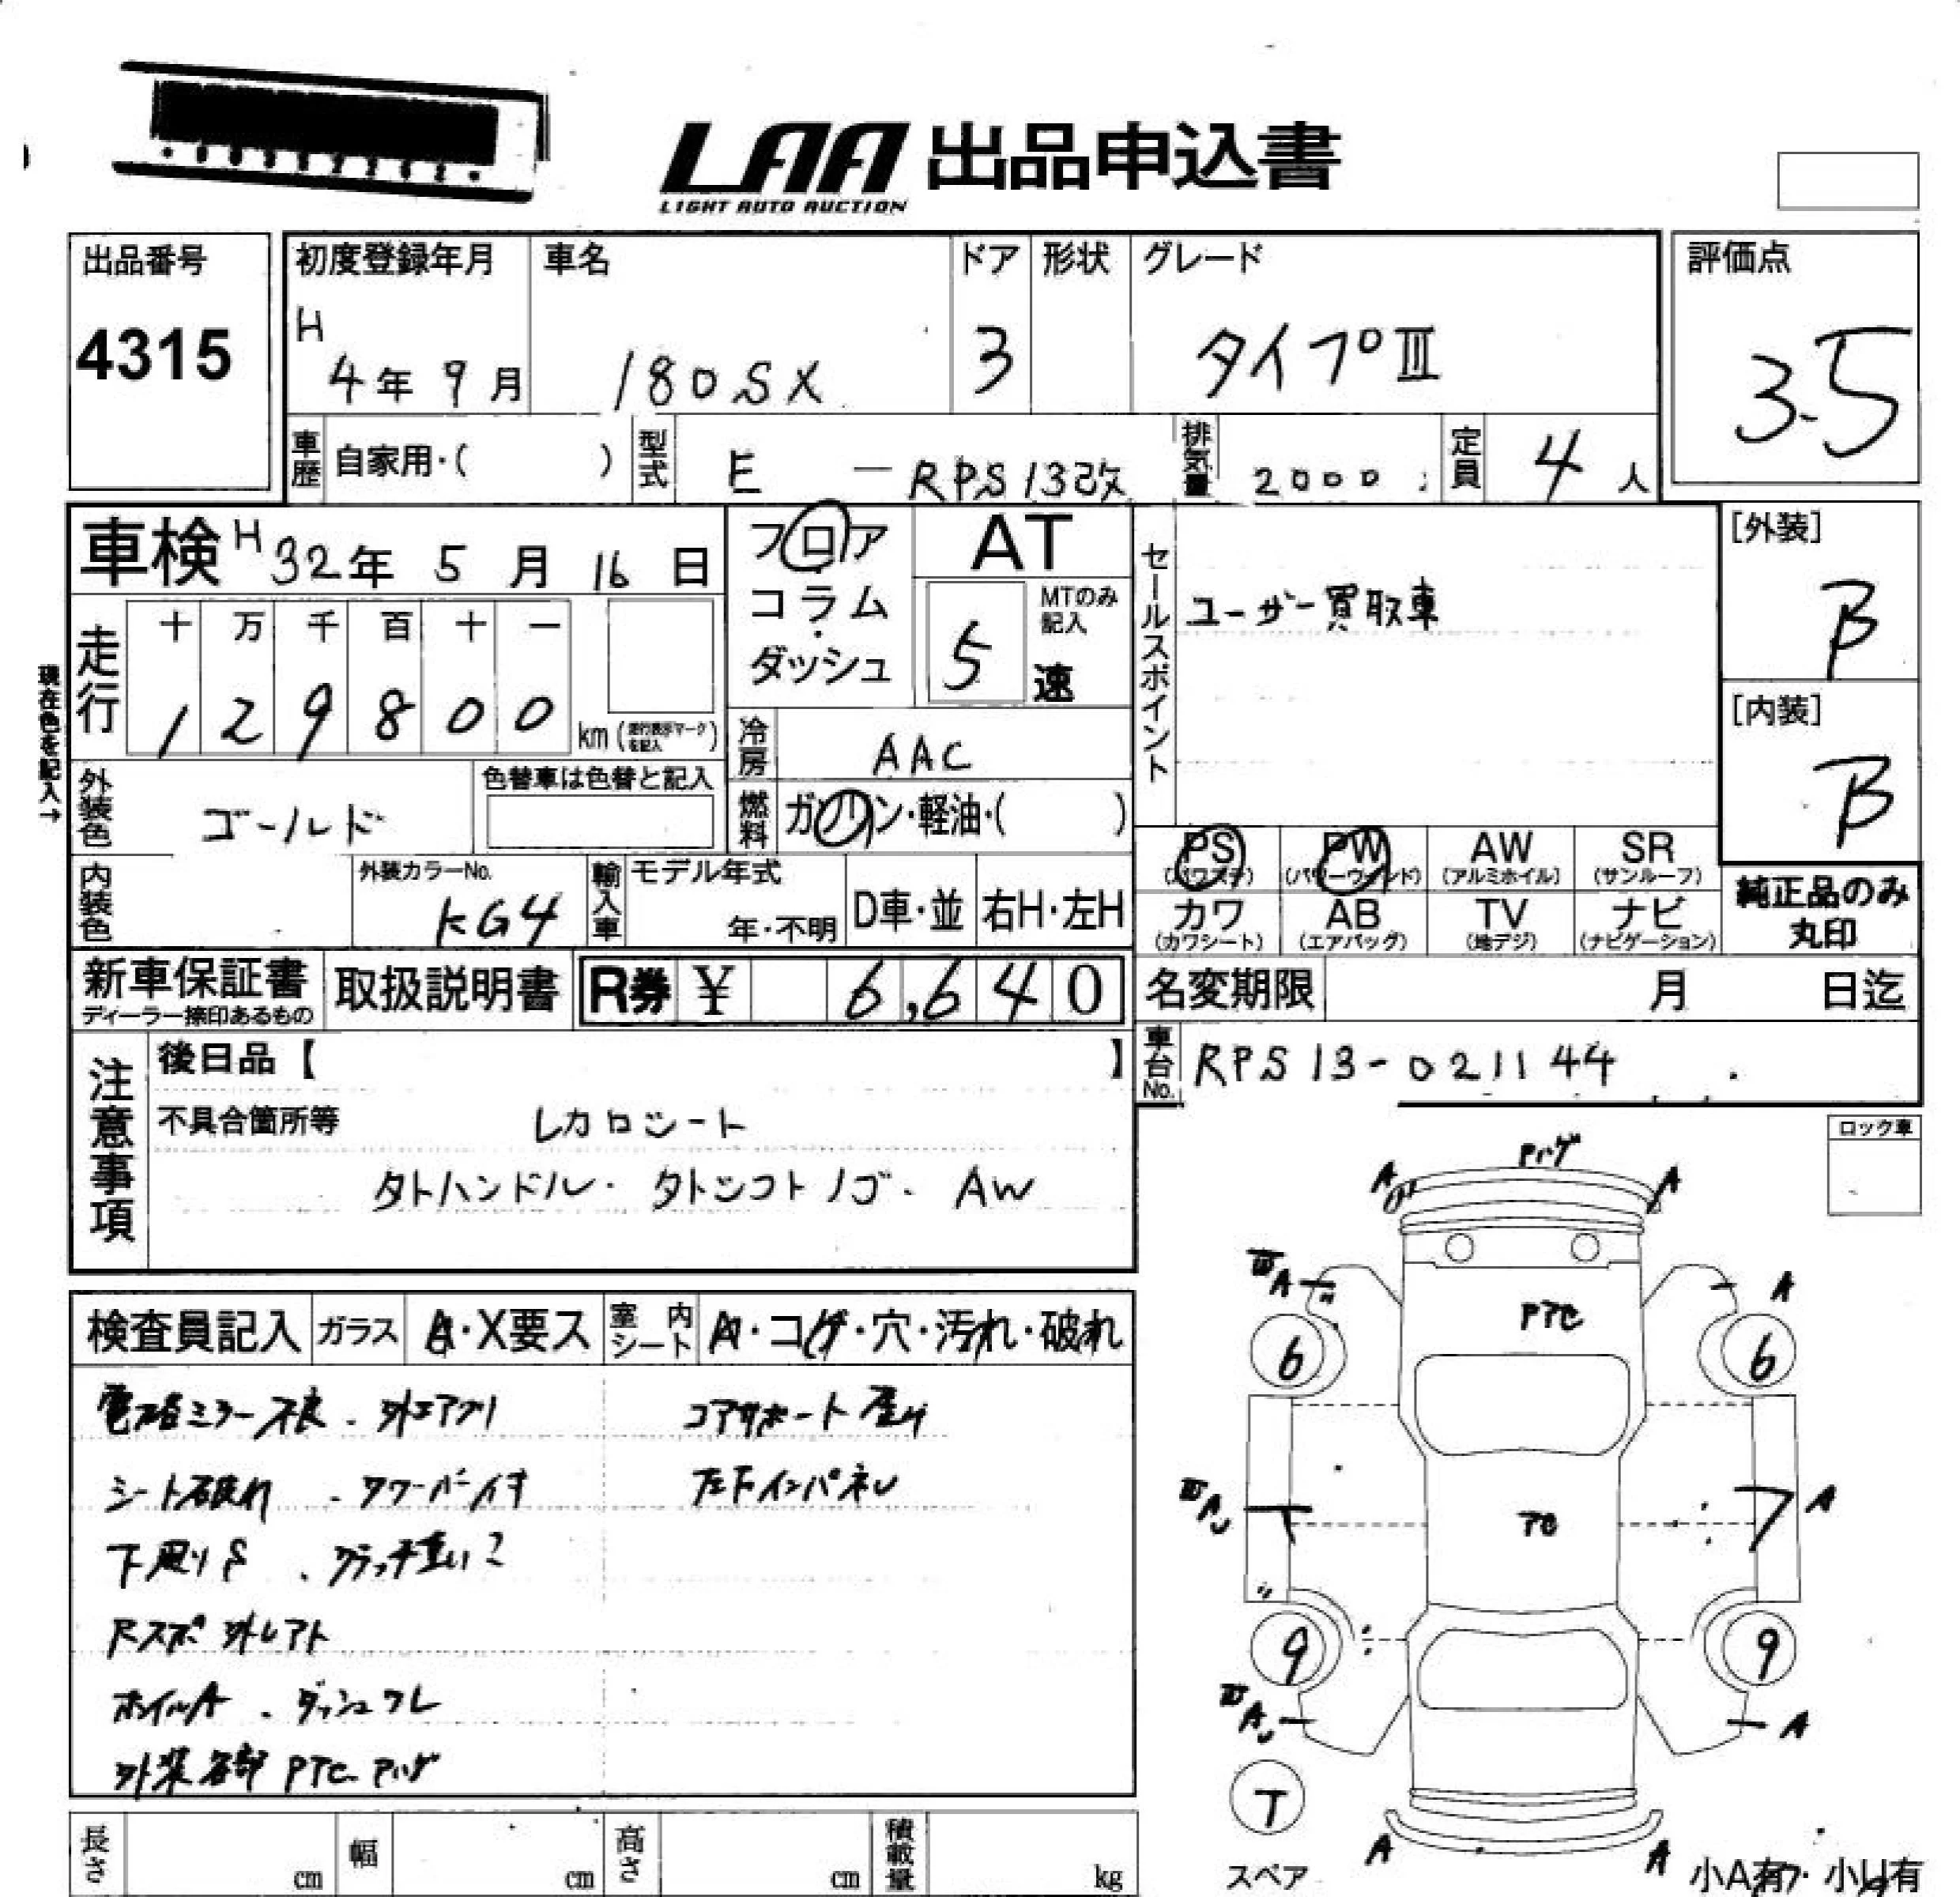 LAA 出品申込書
LIGHT AUTO AUCTION
出品番号
4315
初度登録年月
H
4年 9月
車名
180SX
ドア
3
形状
グレード
タイプⅢ
評価点
3.5
車歴 自家用・( )
型式 E — RPS13改
排気量 2000
定員 4人
車検 H32年 5月 16日
フロア
コラム
ダッシュ
AT
MTのみ記入
5速
セールスポイント
ユーザー買取車
[外装]
B
[内装]
B
走行
十 万 千 百 十 一
1 2 9 8 0 0
km
現在色を記入→
冷房 AAC
燃料 ガソリン・軽油・( )
外装色 ゴールド
色替車は色替と記入
内装色
外装カラーNo.
KG4
輸入車
モデル年式
年・不明
D車・並
右H・左H
PS (パワステ)
PW (パワーウィンド)
AW (アルミホイル)
SR (サンルーフ)
カワ (カワシート)
AB (エアバッグ)
TV (地デジ)
ナビ (ナビゲーション)
純正品のみ
丸印
新車保証書
ディーラー捺印あるもの
取扱説明書
R券 ¥ 6,640
名変期限 月 日迄
車台No. RPS13-021144
注意事項
後日品【 】
不具合箇所等 レカロシート
外ハンドル・外シフトノブ・AW
ロック車
検査員記入
ガラス A・X要ス
室内シート A・コゲ・穴・汚れ・破れ
電格ミラー不良・外エアクリ
コアサポート歪み
シート破れ・タワーバー付
下周りS・クラッチ重い
Rスポ外レアト
ホイルA・ダッシュワレ
外装各部 PTC ハゲ
A
A
A
A
PTC
6
6
A
A
A
9
9
A
A
T
スペア
A
A
長さ cm
幅 cm
高さ cm
積載量 kg